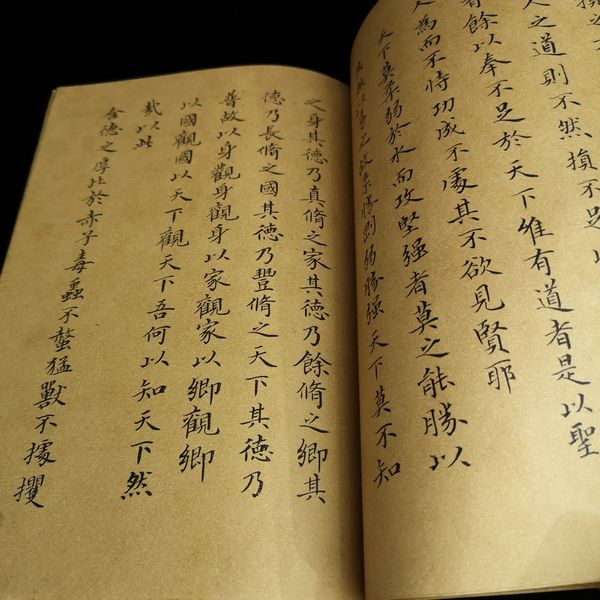 之道則不然損不足以
餘以奉不足於天下維有道者是以聖
人為而不恃功成不處其不欲見賢耶
天下莫柔弱於水而攻堅强者莫之能勝以
其無以易之故柔勝剛弱勝强天下莫不知
之身其德乃真脩之家其德乃餘脩之鄉其
德乃長脩之國其德乃豐脩之天下其德乃
普故以身觀身觀身以家觀家以鄉觀鄉
以國觀國以天下觀天下吾何以知天下然
哉以此
含德之厚比於赤子毒蟲不螫猛獸不據攫